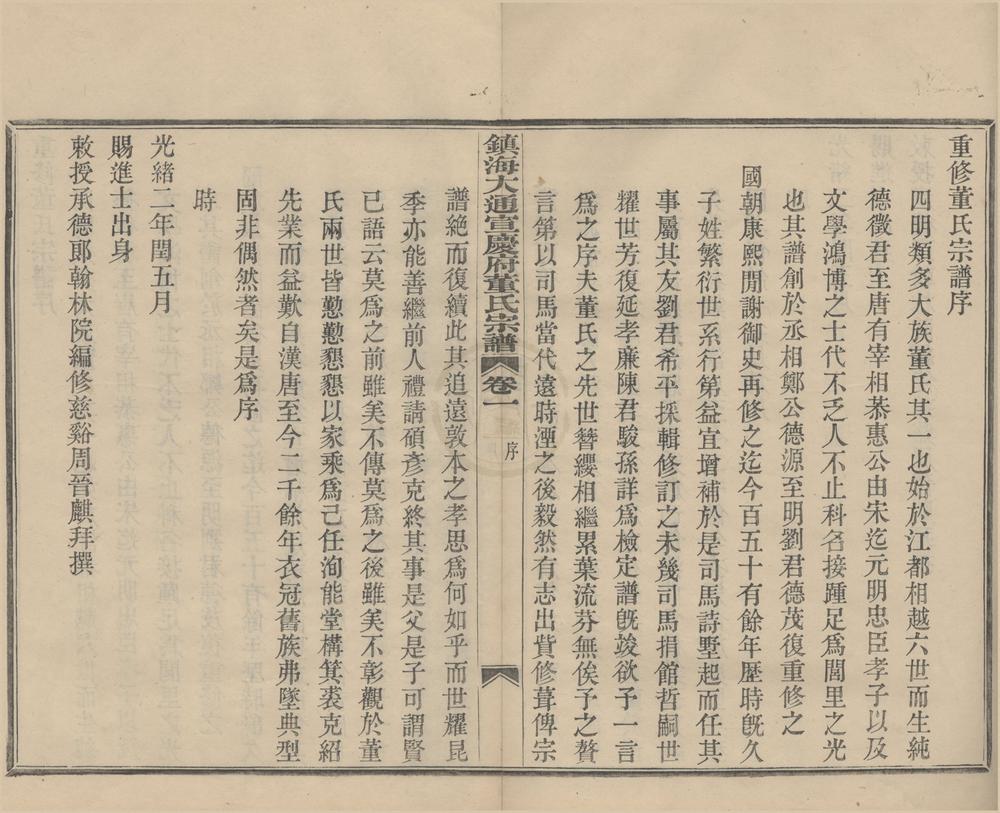 重修董氏宗譜序
四明類多大族董氏其一也始於江都相越六世而生純
德徵君至唐有宰相恭惠公由宋迄元明忠臣孝子以及
文學鴻博之士代不乏人不止科名接踵足爲閭里之光
也其譜創於丞相鄭公德源至明劉君德茂復重修之
國朝康熙閒謝御史再修之迄今百五十有餘年歷時旣久
子姓繁衍世系行第益宜增補於是司馬詩墅起而任其
事屬其友劉君希平採輯修訂之未幾司馬捐館哲嗣世
耀世芳復延孝廉陳君駿孫詳爲檢定譜旣竣欲予一言
爲之序夫董氏之先世簪纓相繼累葉流芬無俟予之贅
言第以司馬當代遠時湮之後毅然有志出貲修葺俾宗
鎮海大通宣慶府董氏宗譜 卷一 序
譜絕而復續此其追遠敦本之孝思爲何如乎而世耀昆
季亦能善繼前人禮請碩彥克終其事是父是子可謂賢
已語云莫爲之前雖美不傳莫爲之後雖美不彰觀於董
氏兩世皆懃懃懇懇以家乘爲己任洵能堂構箕裘克紹
先業而益歎自漢唐至今二千餘年衣冠舊族弗墜典型
固非偶然者矣是爲序
時
光緒二年閏五月
賜進士出身
敕授承德郎翰林院編修慈谿周晉麒拜撰